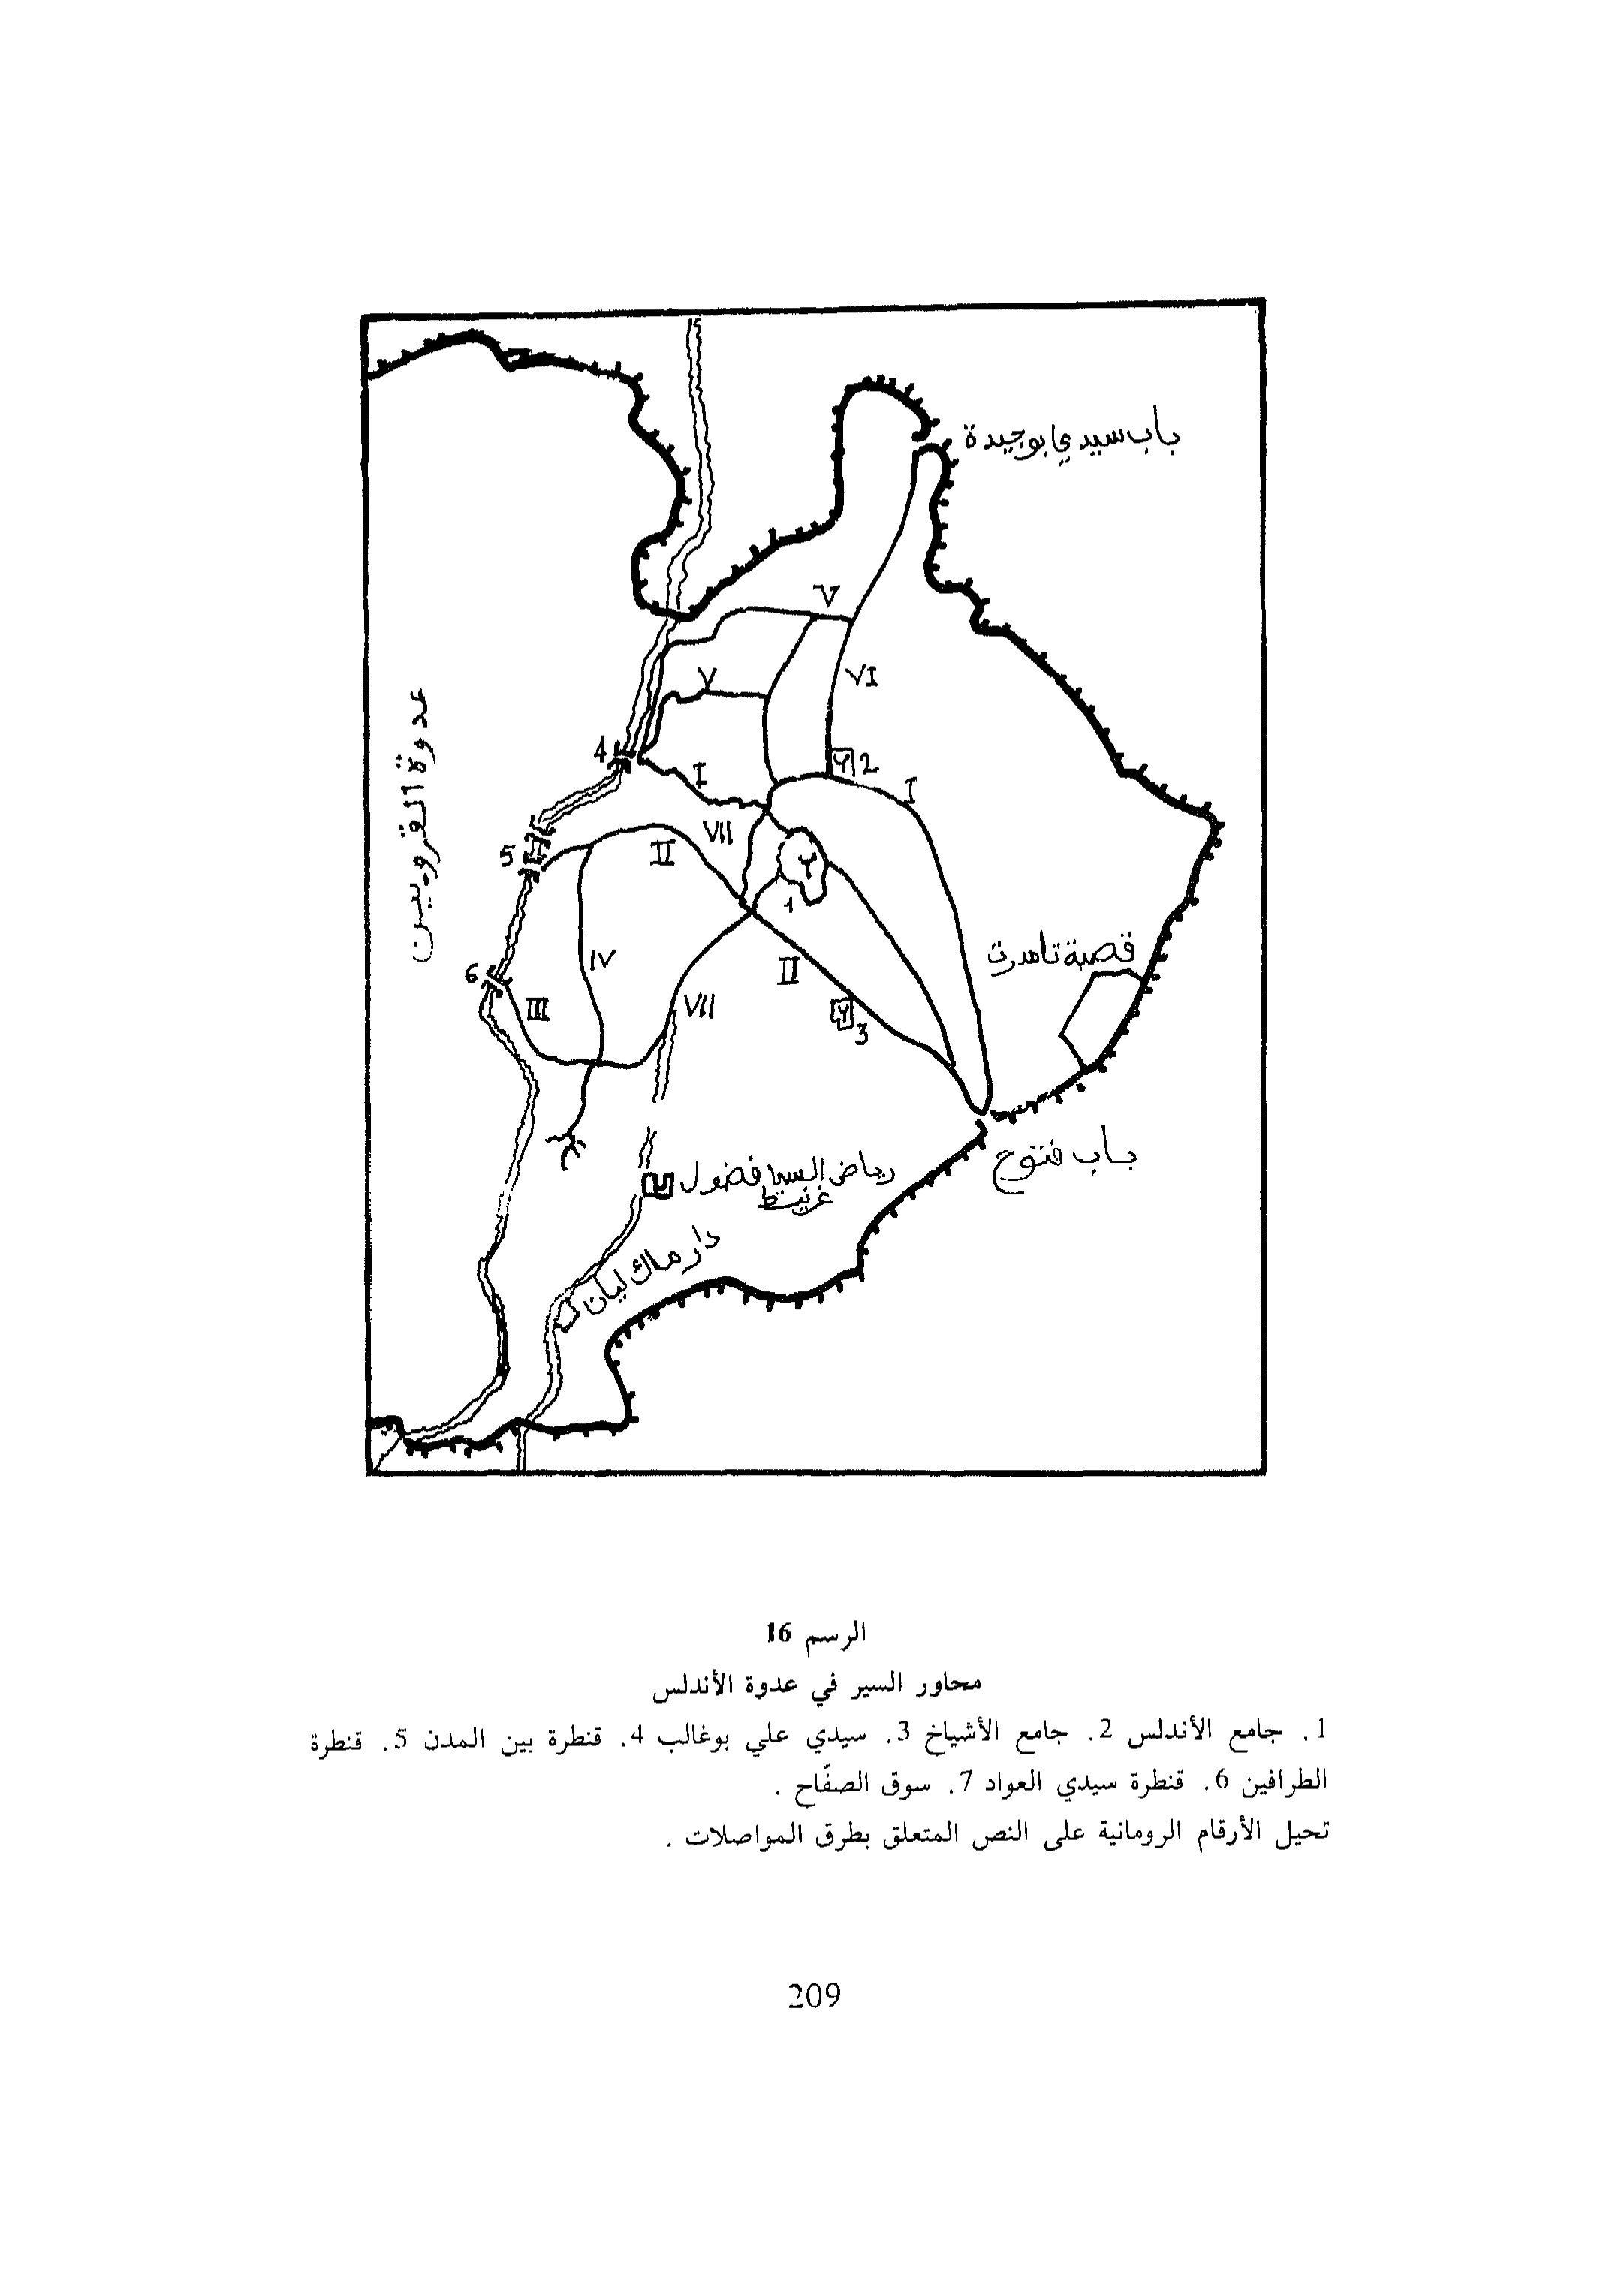 باب سيدي بوجيدة
V
V
VI
عدوة القرويين
4
I
2
I
VII
5
II
1
قصبة تامدرت
6
IV
II
III
VII
3
باب فتوح
رياض السي فضول
غرنيط
دار ماك ليان
الرسم 16
محاور السير في عدوة الأندلس
1. جامع الأندلس 2. جامع الأشياخ 3. سيدي علي بوغالب 4. قنطرة بين المدن 5. قنطرة
الطرافين 6. قنطرة سيدي العواد 7. سوق الصفّاح .
تحيل الأرقام الرومانية على النص المتعلق بطرق المواصلات .
209